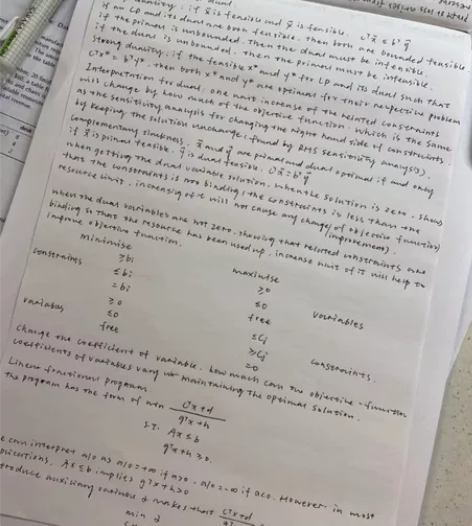 duality: if x̄ is feasible and ȳ is feasible. cᵀx̄ ≤ bᵀȳ
if an LP and its dual are both feasible, then both are bounded feasible
if the primal is unbounded. Then the dual must be infeasible.
if the dual is unbounded. Then the primal must be infeasible.
Strong duality: if the feasible x* and y* for LP and its dual such that
cᵀx* = bᵀy*. then both x* and y* are optimal for their respective problem
Interpretation for dual: one unit increase of the related constraints
will change by how much of the objective function. Which is the same
as the sensitivity analysis for changing the right hand side of constraints
by keeping the solution unchange (found by RHS sensitivity analysis).
Complementary slackness. x̄ and ȳ are primal and dual optimal if and only
if x̄ is primal feasible. ȳ is dual feasible. cᵀx̄ = bᵀȳ
when getting the dual variable solution. when the solution is zero. shows
that the constraints is not binding: the constraints is less than the
resource limit. increasing it will not cause any change of objective function
(improvement).
when the dual variables are not zero. showing that related constraints are
binding so that the resource has been used up. increase unit of it will help to
improve objective function.
minimise maximise
constraints ≥bi ≥0 variables
≤bi ≤0
=bi free
variables ≥0 ≤Cj constraints.
≤0 ≥Cj
free =0
Change the coefficient of variable. how much can the objective-function
coefficients of variables vary maintaining the optimal solution.
Linear fractional program
the program has the form of min cᵀx+d
gᵀx+h
s.t. Ax≤b
gᵀx+h≥0.
can interpret a/0 as a/0=+∞ if a>0. a/0=-∞ if a≤0. However in most
Ax≤b implies gᵀx+h>0
auxiliary variable makes that cᵀx+d
min